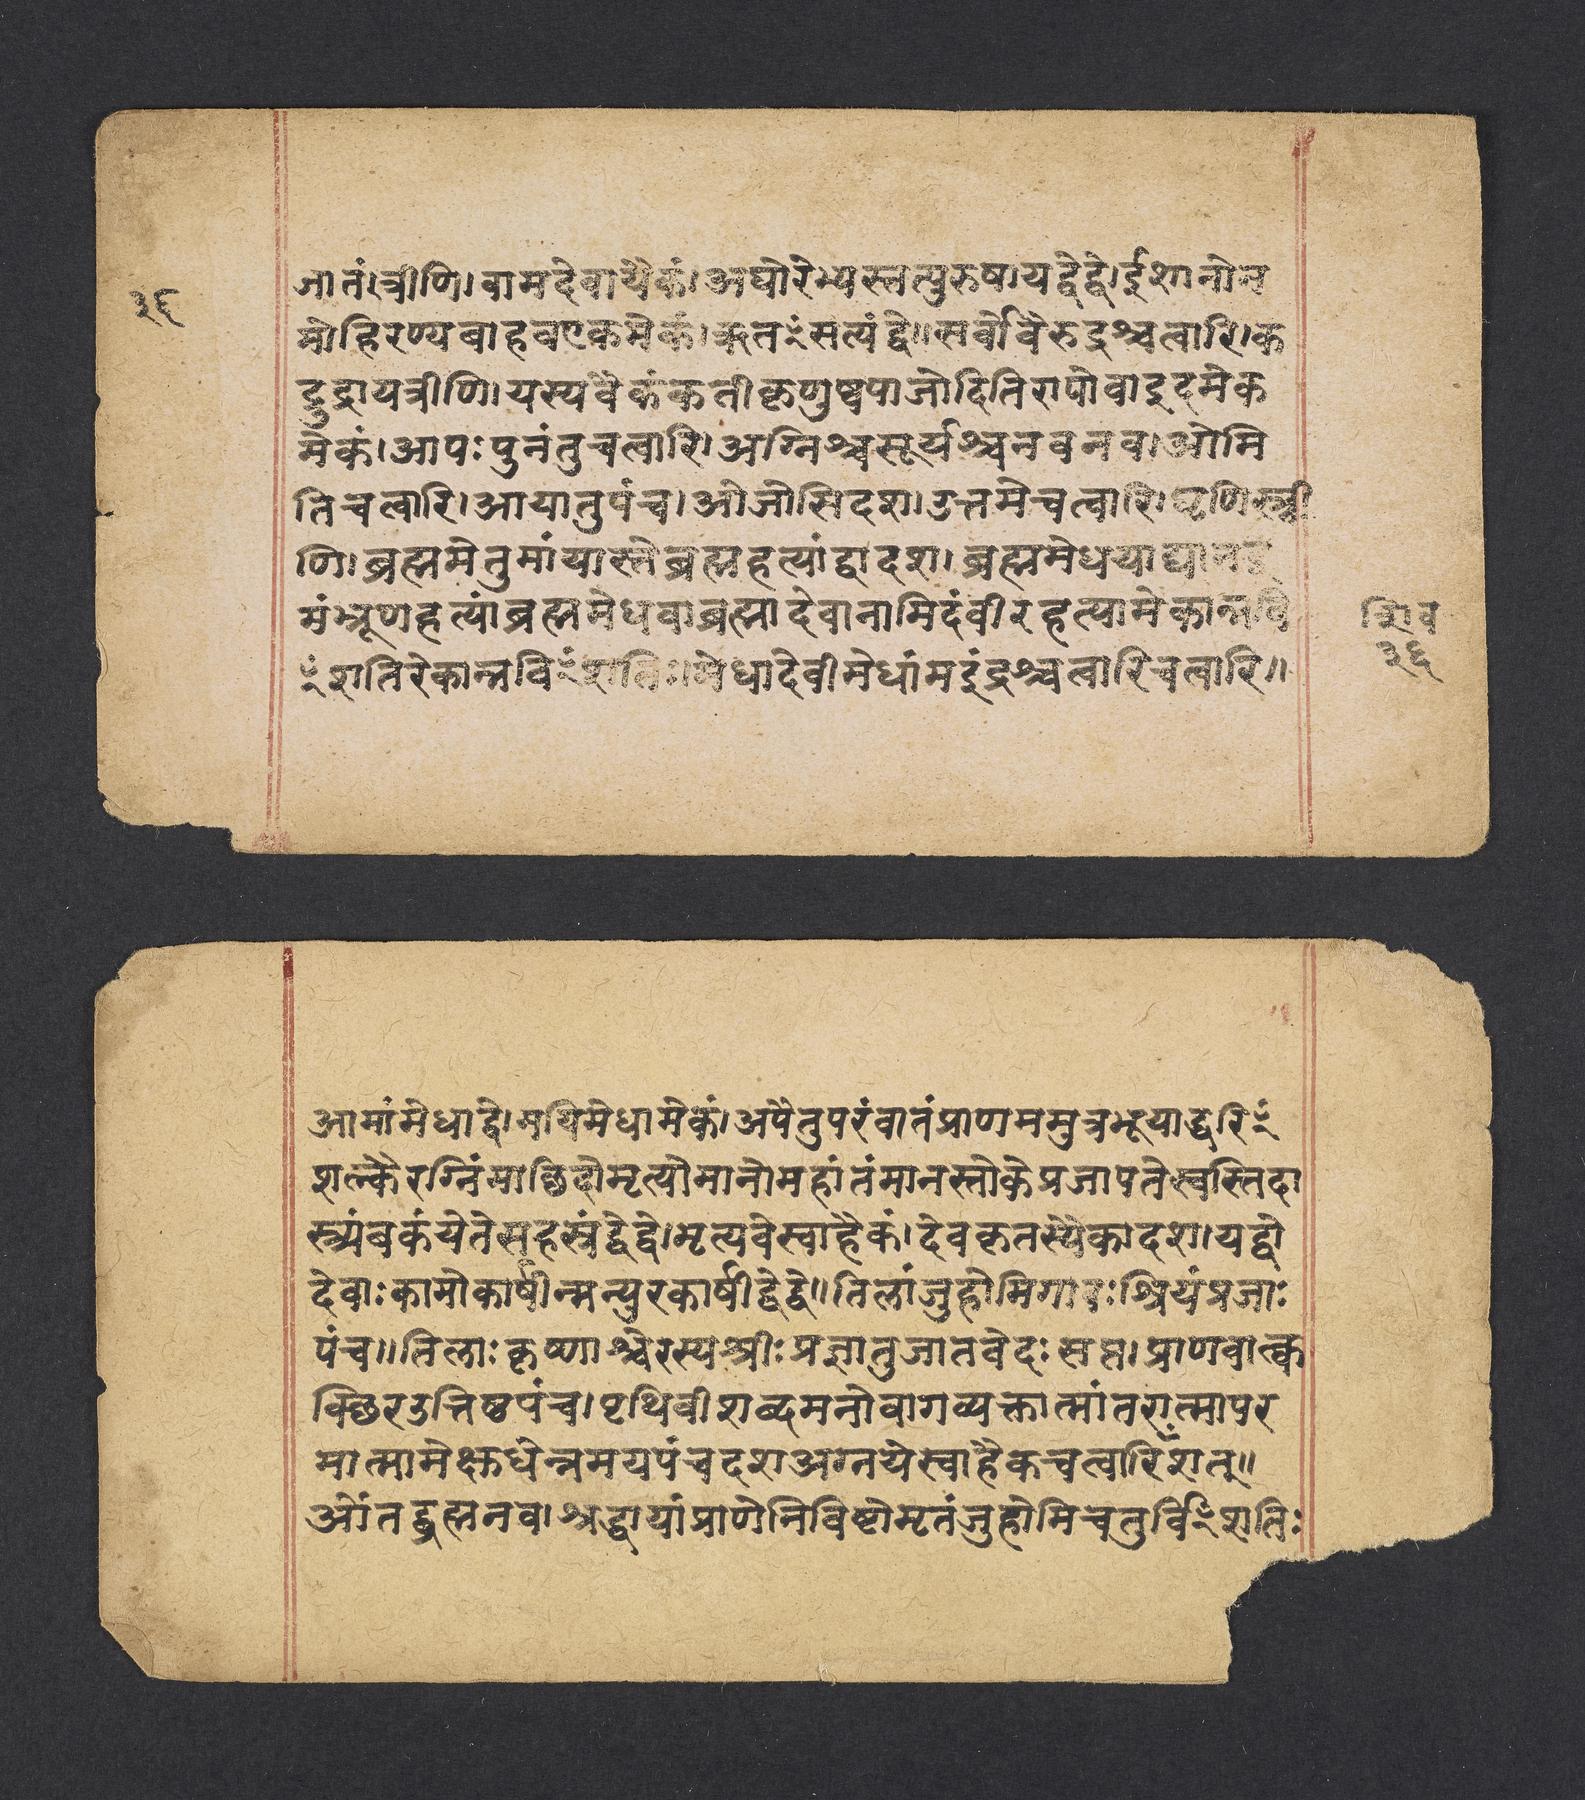 ३६
जातं।त्रीणि। वामदेवायैकं। अघोरेभ्यस्तत्पुरुषायद्वेद्वे। ईशानोन
मोहिरण्यबाहवएकमेकं। ऋतꣳसत्यंद्वे॥ सर्वोवैरुद्रश्चत्वारि। क
द्रुद्रायत्रीणि। यस्यवैकंकतीकृणुष्वपाजोदितिरापोवाइदमेक
मेकं। आपः पुनंतुचत्वारि। अग्निश्चसूर्यश्चनवनव। ओमि
तिचत्वारि। आयातुपंच। ओजोसिदश। उत्तमेचत्वारि। घृणिस्त्री
णि। ब्रह्ममेतुमांयास्तेब्रह्महत्यांद्वादश। ब्रह्ममेधयाद्यानइ
मंभ्रूणहत्यांब्रह्ममेधवाब्रह्मादेवानामिदंवीरहत्यामेकान्नविꣳ
ꣳशतिरेकान्नविꣳशतिः॥ मेधादेवीमेधांमइंद्रश्चत्वारिचत्वारि॥
शिव
३६
आमांमेधाद्वे। मयिमेधामेकं। अपैतुपरंवातंप्राणममुत्रभूयाद्धरिꣳ
शल्कैरग्निंमाछिदोमृत्योमानोमहांतंमानस्तोकेप्रजापतेस्वस्तिदा
स्त्र्यंबकंयेतेसहस्रंद्वेद्वे। मृत्यवेस्वाहैकं। देवकृतस्यैकादश। यद्वो
देवाः कामोकार्षीन्मन्युरकार्षीद्द्वेद्वे॥ तिलांजुहोमिगावः श्रियंप्रजाः
पंच॥ तिलाः कृष्णाश्चोरस्यश्रीः प्रज्ञातुजातवेदः सप्त। प्राणवात्क्व
क्छिरउत्तिष्ठपंच। पृथिवीशब्दमनोवागव्यक्तात्मांतरात्मापर
मात्मामेक्षुधेन्नमयपंचदशअग्नयेस्वाहैकचत्वारिꣳशत्॥
ओंतद्ब्रह्मनव। श्रद्धायांप्राणेनिविष्टोमृतंजुहोमिचतुर्विꣳशतिः